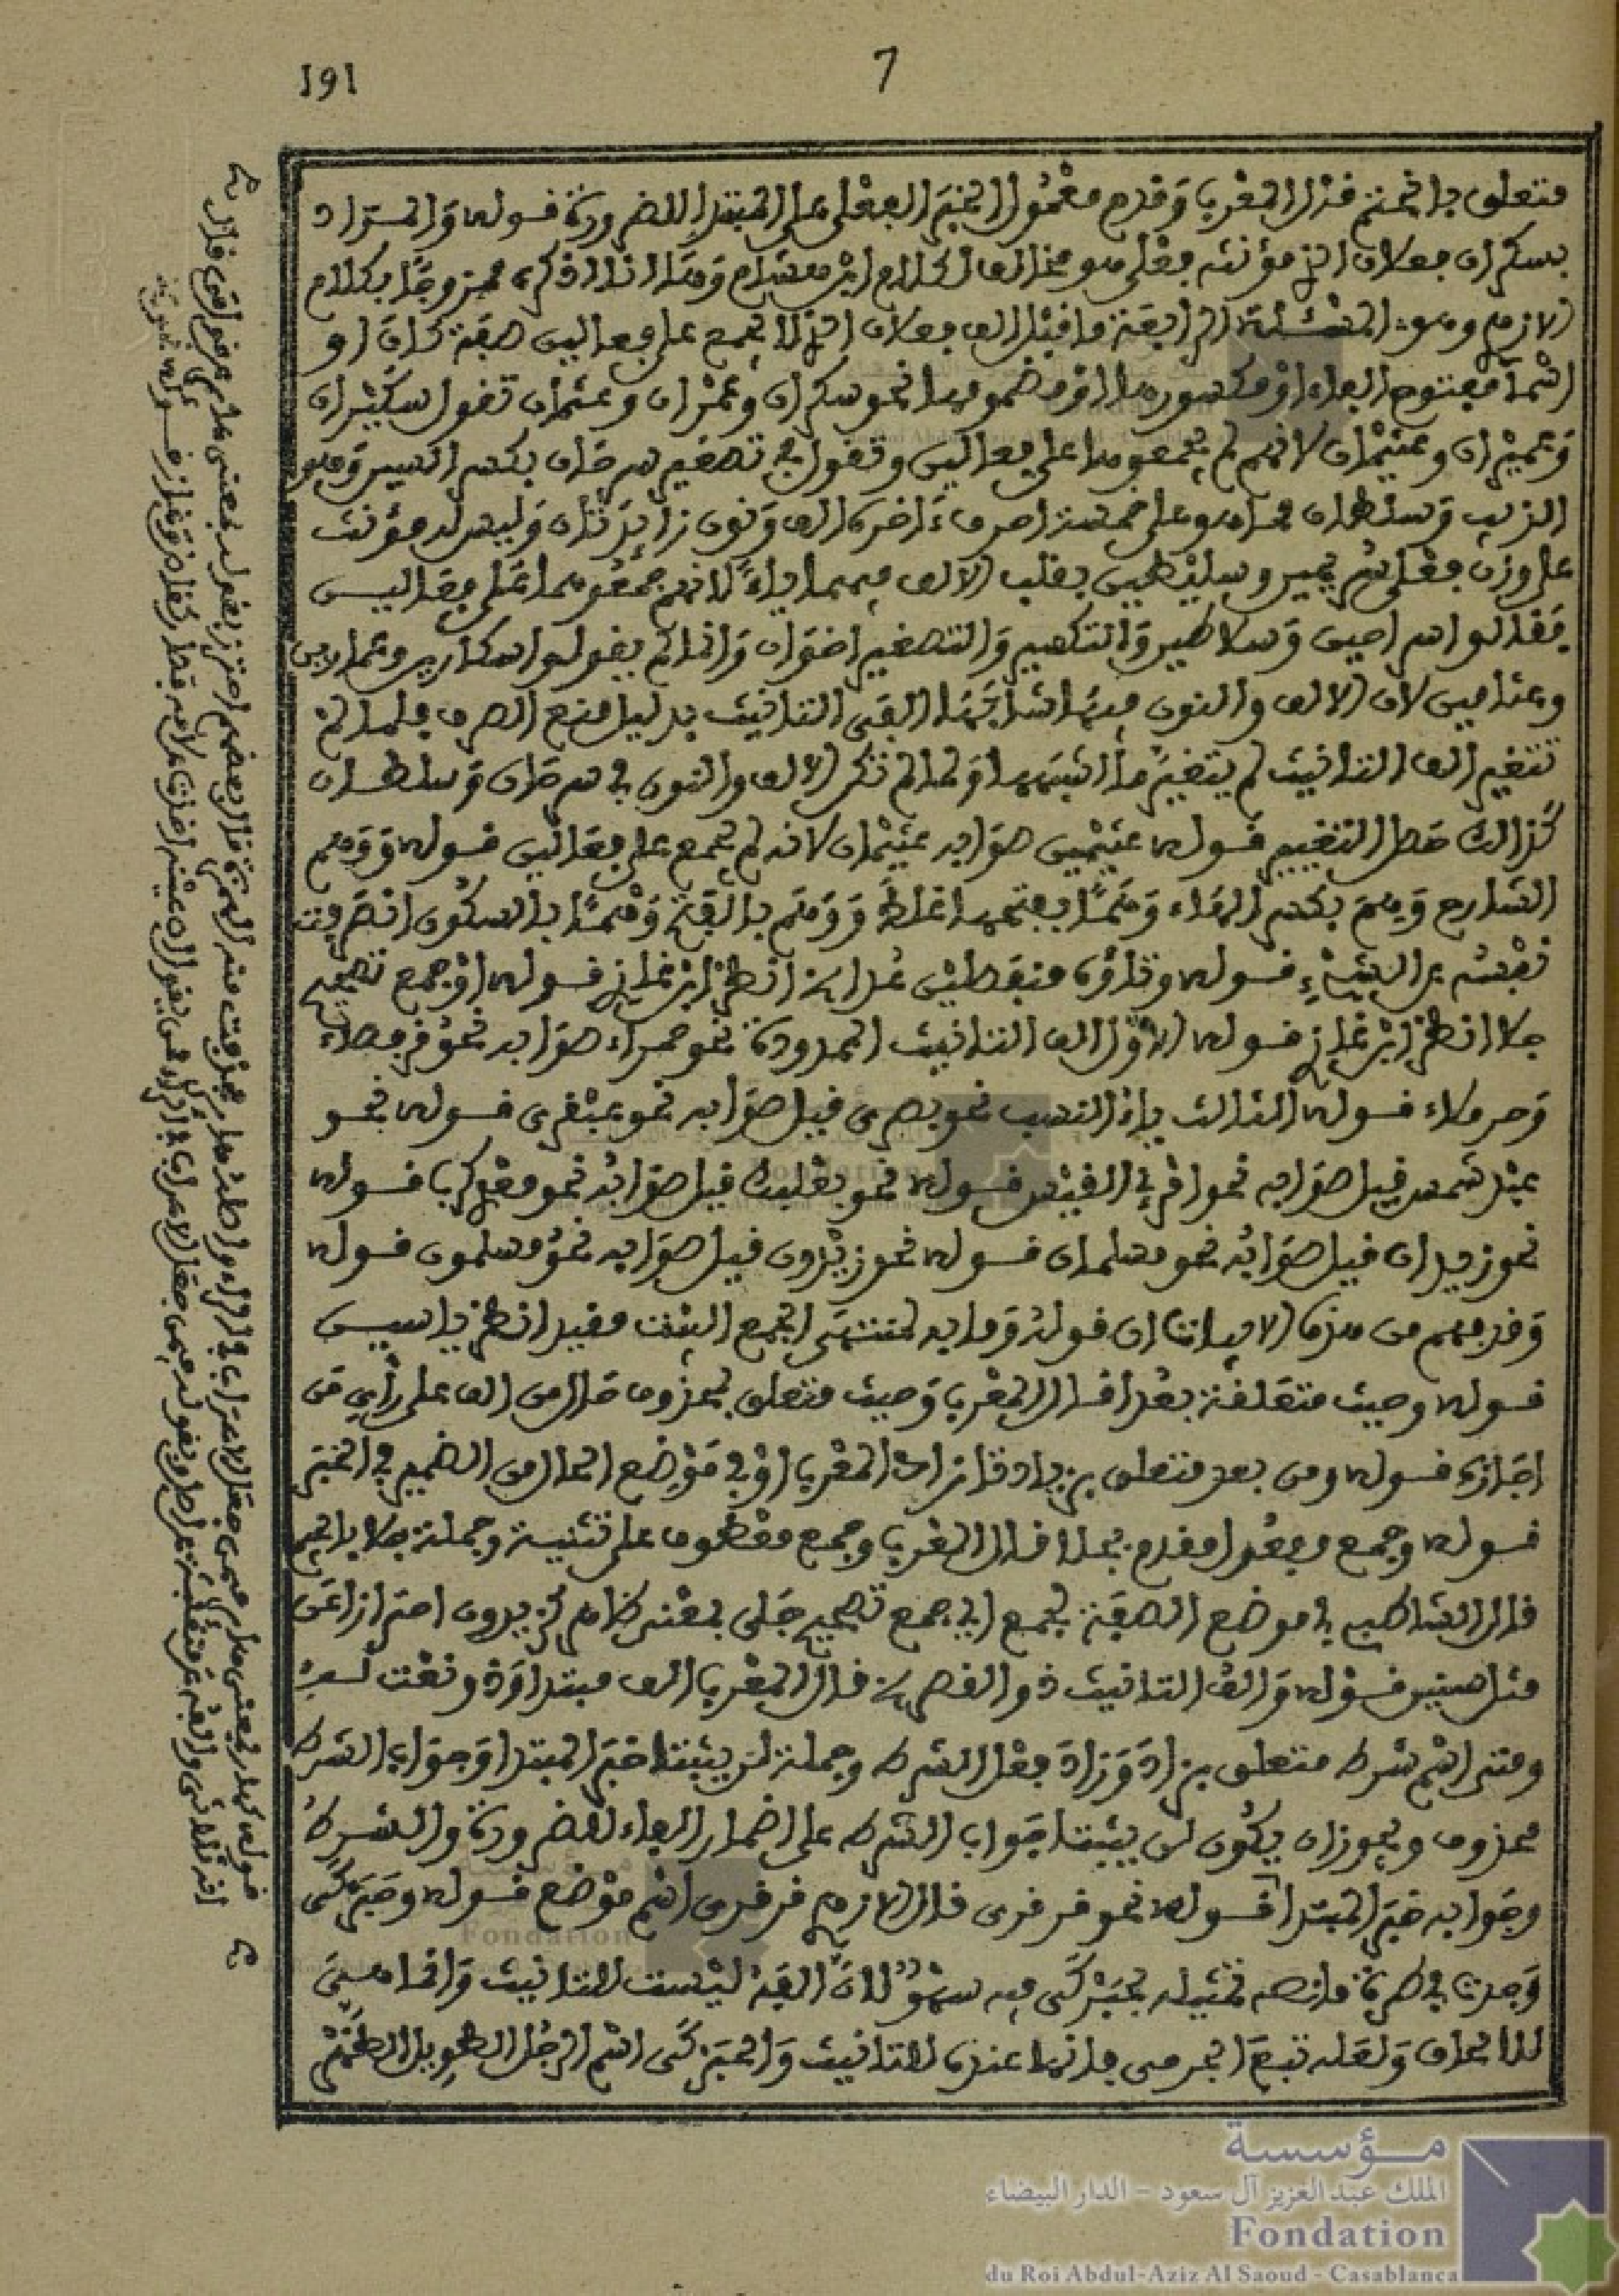 191
7
متعلق بانحتم قال المعرب وقدم معمول الخبر الفعلي على المبتدإ للضرورة قوله والمراد
بسكران فعلان الذي مؤنثه فعلى هو مخالف لكلام ابن هشام وها انا اذكره ممزوجا بكلام
الازهري وهو المسئلة الرابعة ما قبل الف فعلان الذي لا يجمع على فعالين صفة كان او
اسما مفتوح الفاء او مكسورها او مضمومها نحو سكران وعمران وعثمان تقول سكيران
وعميران وعثيمان لانهم لم يجمعوها على فعالين وتقول في تصغير سرحان بكسر السين وهو
الذيب وسلطان مما هو على خمسة احرف ءاخره الف ونون زايدتان وليس له مؤنث
على وزن فعلى سريحين وسليطين بقلب الالف فيهما ياء لانهم جمعوهما على فعالين
فقالوا سراحين وسلاطين والتكسير والتصغير اخوان وانما لم يقولوا سكارين وعمارين
وعثامين لان الالف والنون فيها شابها الفي التانيث بدليل منع الصرف فلما لم
تتغير الف التانيث لم يتغير ما اشبهها ولما لم تكن الالف والنون في سرحان وسلطان
كذالك حصل التغيير قوله عثيمين صوابه عثيمان لانه لم يجمع على فعالين قوله ووهم
الشارح وهم بكسر الهاء وهما بفتحها غلط ووهم بالفتح وهما بالسكون انصرفت
نفسه عن الشيء قوله وتاؤه منقطتين عدا انظر ابن غازي قوله او جمع تصحيح
جلا انظر ابن غازي قوله الاول الف التانيث الممدودة نحو حمراء صوابه نحو قرفصاء
وحرملاء قوله الثالث ياء النسب نحو بصرى قيل صوابه نحو عبقرى قوله نحو
عبد شمس قيل صوابه نحو امرئ القيس قوله نحو بعلبك قيل صوابه نحو معدي كرب قوله
نحو زيدان قيل صوابه نحو مسلمان قوله نحو زيدون قيل صوابه نحو مسلمون قوله
وقد فهم من هذه الابيات ان قوله وما به لمنتهى الجمع البيت مقيد انظر ياسين
قوله وحيث متعلقة بعدا قال المعرب وحيث متعلق بمحذوف حال من الف على رأي من
اجازه قوله ومن بعد متعلق بزيادتا زاد المعرب او في موضع الحال من الضمير في الخبر
قوله وجمع مفعول مقدم بجلا قال المعرب وجمع معطوف على تثنية وجملة جلا بالجيم
قال الشاطبي في موضع الصفة لجمع اي جمع تصحيح جلى بمعنى ظاهر كزيدون احترازا عن
مثل سنين قوله والف التانيث ذو القصر قال المعرب الف مبتدا وذو نعت له
ومتى اسم شرط متعلق بزاد وزاد فعل الشرط وجملة لن يثبتا خبر المبتدا وجواب الشرط
محذوف ويجوز ان يكون لن يثبتا جواب الشرط على اضمار الفاء للضرورة والشرط
وجوابه خبر المبتدا قوله نحو قرقرى قال الازهري قرقرى اسم موضع قوله وحبركى
وجدت في طرة ما نصه تمثيله بحبركى فيه سهو لان الفه ليست للتانيث وانما هي
للالحاق ولعله تبع الجرمي فانها عنده للتانيث والحبركى اسم الرجل الطويل الظهر
مؤسسة
الملك عبد العزيز آل سعود - الدار البيضاء
Fondation
du Roi Abdul-Aziz Al Saoud - Casablanca